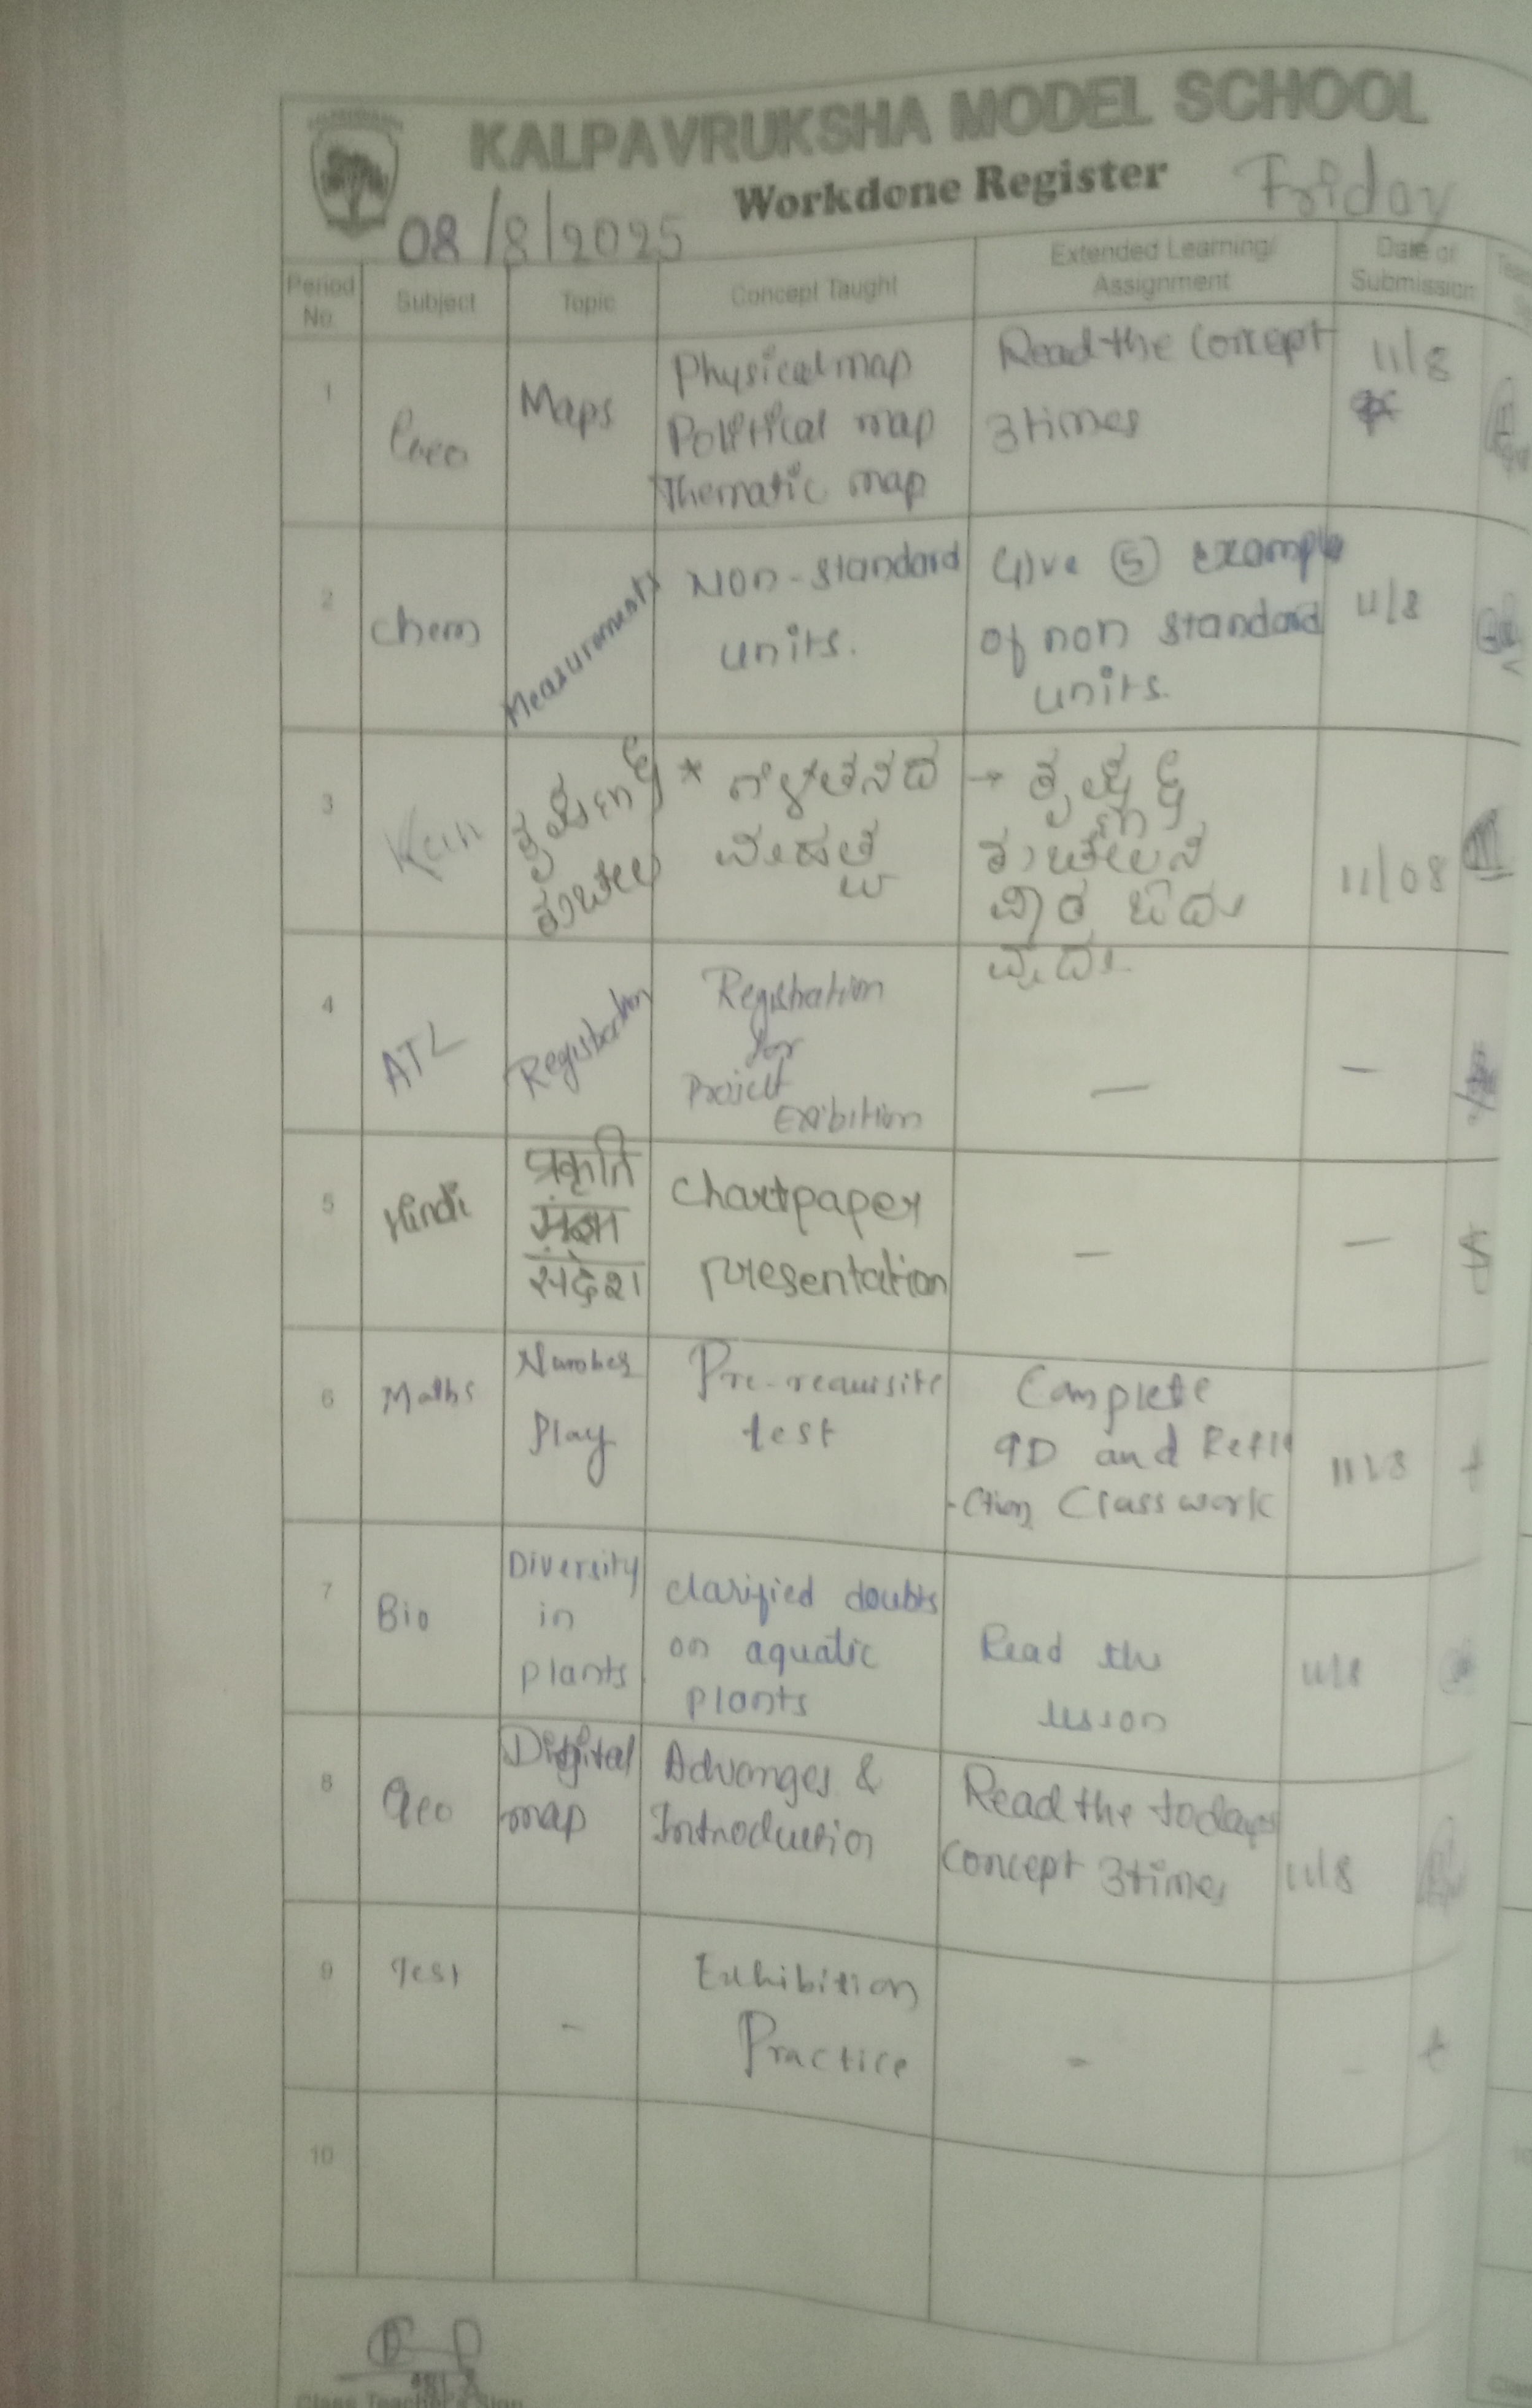 KALPAVRUKSHA MODEL SCHOOL
Workdone Register
Friday
08/8/2025
Period No
Subject
Topic
Concept Taught
Extended Learning/ Assignment
Date of Submission
1
Geo
Maps
Physical map
Political map
Thematic map
Read the Concept
3 times
11/8
2
Chem
Measurements
Non-standard
units.
Give 5 example
of non standard
units.
11/8
3
Kan
11/08
4
ATL
Registration
Registration
for
Project
Exibition
—
—
5
Hindi
प्रकृति
संदेश
Chartpaper
presentation
—
—
6
Maths
Number
Play
Pre-requisite
test
Complete
9D and Refle
-ction Classwork
11/8
7
Bio
Diversity
in
plants
clarified doubts
on aquatic
plants
Read the
lesson
11/8
8
Geo
Digital
map
Advanges &
Introduction
Read the todays
concept 3times
11/8
9
Test
-
Exhibition
Practice
-
-
10
Class Teacher's Sign